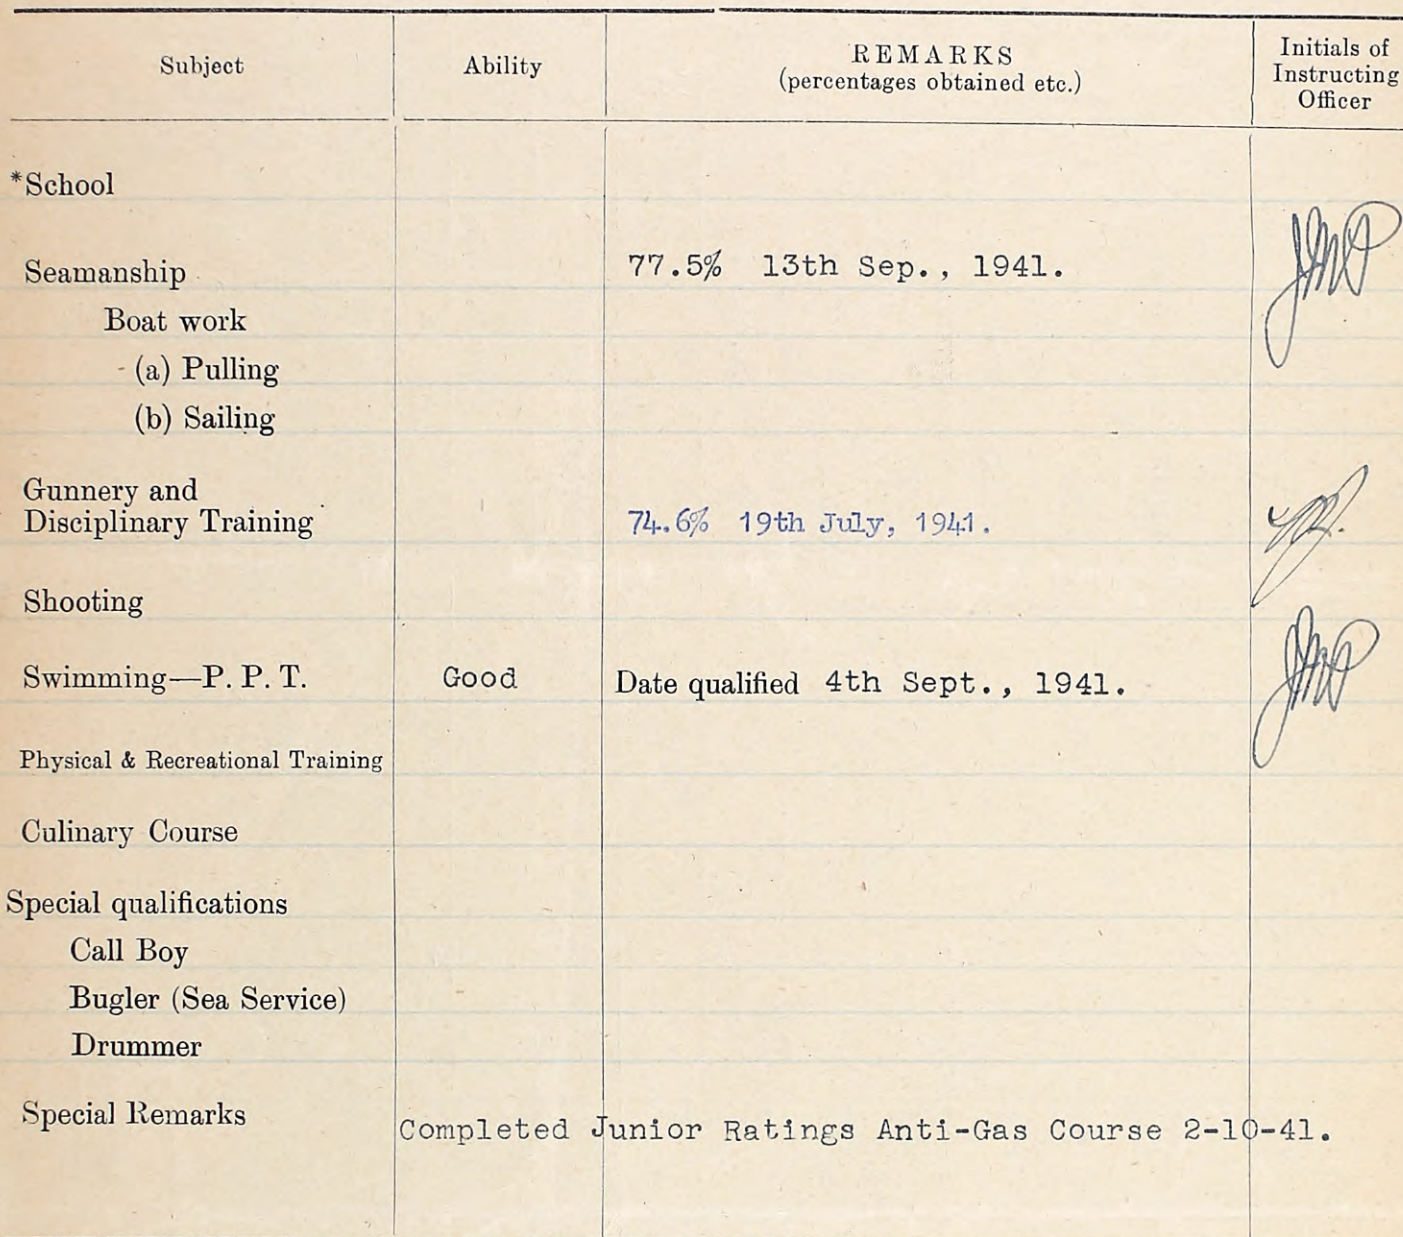 Subject Ability REMARKS Initials of
(percentages obtained etc.) Instructing
Officer
*School
Seamanship 77.5% 13th Sep., 1941.
Boat work
(a) Pulling
(b) Sailing
Gunnery and
Disciplinary Training 74.6% 19th July, 1941.
Shooting
Swimming—P. P. T. Good Date qualified 4th Sept., 1941.
Physical & Recreational Training
Culinary Course
Special qualifications
Call Boy
Bugler (Sea Service)
Drummer
Special Remarks Completed Junior Ratings Anti-Gas Course 2-10-41.